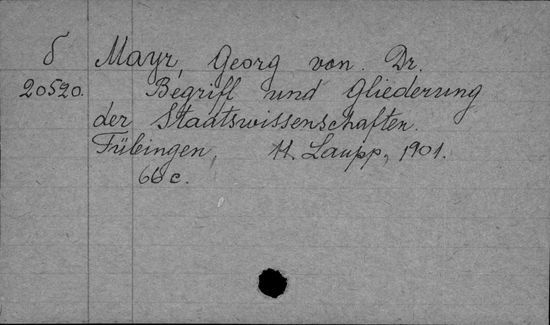 δ Mayr, Georg von. Dr.
20520. Begriff und Gliederung
der Staatswissenschaften.
Tübingen, H. Laupp, 1901.
66 c.